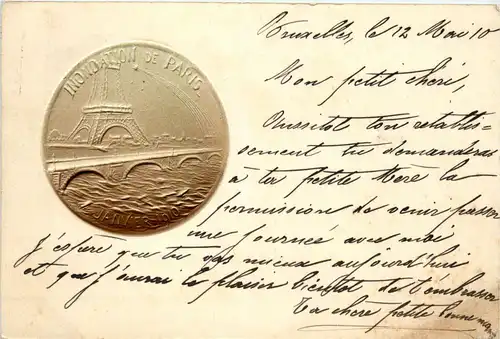 INONDATION DE PARIS
JANVIER 1910
Bruxelles, le 12 Mai 10
Mon petit chéri,
Aussitot ton rétablis-
sement tu demanderas
à ta petite Mère la
permission de venir passer
une journée avec moi
J'espère que tu vas mieux aujourd'hui
et que j'aurai le plaisir bientôt de t'embrasser
Ta chère petite bonne